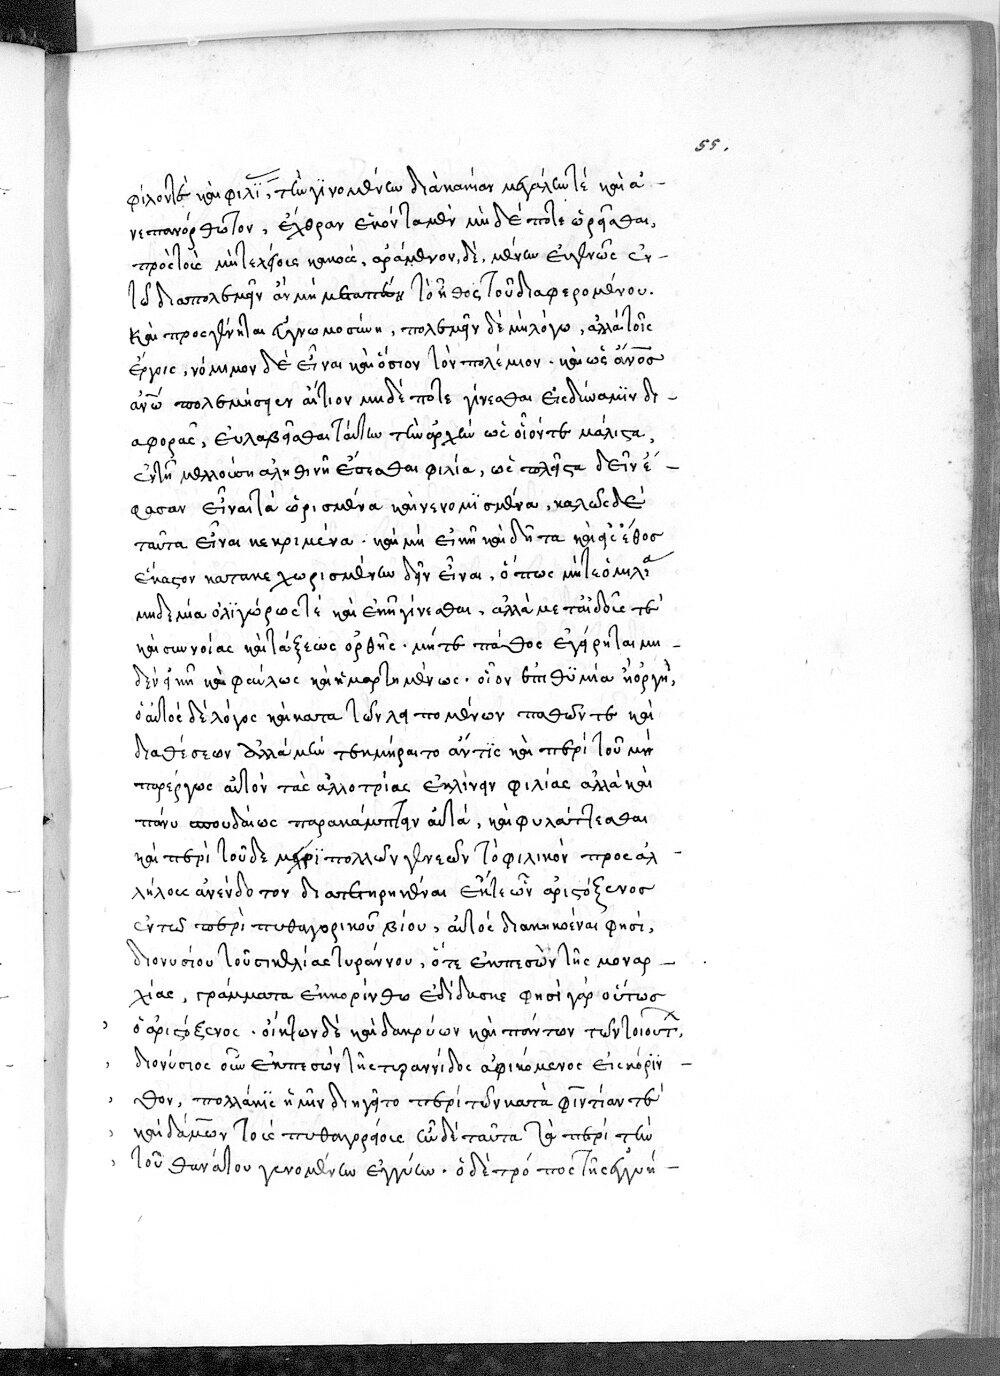 55.
φίλοντὲ καὶ φιλί, τὴν γϊνομένην διὰ κακίαν μεγάλην τέ καὶ ἀ-
νεπανόρθωτον, ἔχθραν ἑκόντα μὲν μηδέ ποτε ὠρῆσθαι,
πρὸς τοὺς μὴ τελείους κακοὺς, ἀράμενον, δὲ, μένειν εὐγενῶς ἐν
τῶ διαπολεμεῖν ἂν μὴ μεταπέσῃ τὸ ἦθος τοῦ διαφερομένου.
καὶ προσγένηται εὐγνωμοσύνη, πολεμεῖν δὲ μὴ λόγω, ἀλλὰ τοῖς
ἔργοις, νόμιμον δὲ εἶναι καὶ ὅσιον τὸν πολέμιον. καὶ ὡς ἄνος
ἀνῶ πολεμήσειεν αἴτιον μηδέ ποτε γίνεσθαι εἰς δύναμϊν δι-
αφορᾶς, εὐλαβεῖσθαι ταύτην τὴν ἀρχὴν ὡς οἷόν τε μάλιστα,
ἐν τῇ μελλούσῃ ἀληθινῇ ἔσεσθαι φιλία, ὡς πλεῖστα δεῖν ἔ-
φασαν εἶναι τὰ ὡρισμένα καὶ νενομϊσμένα, καλῶς δὲ
ταῦτα εἶναι κεκριμένα. καὶ μὴ εἰκῆ καὶ δῆτα καὶ εἰς ἔθος
ἕκαστον κατακεχωρισμένον δεῖν εἶναι, ὅπως μήτε ὁμιλία
μηδεμία ὀλϊγώρως τὲ καὶ εἰκῆ γίνεσθαι, ἀλλὰ μετ αἰδοῦς τὲ
καὶ συννοίας καὶ τάξεως ὀρθῆς. μήτε πάθος ἐγείρηται μη-
δὲν εἰκῆ καὶ φαύλως καὶ ἡμαρτημένως. οἷον ἐπιθϋμία ἢ ὀργή,
ὁ αὐτὸς δὲ λόγος καὶ κατα τῶν λειπομένων παθῶν τε καὶ
διαθέσεων ἀλλὰ μὴν τεκμήραιτο ἄν τϊς καὶ περὶ τοῦ μὴ
παρέργως αὐτὸν τὰς ἀλλοτρίας ἐκκλίνειν φιλίας ἀλλὰ καὶ
πάνυ σπουδαίως παρακάμπτειν αὐτὰ, καὶ φυλάττεσθαι
καὶ περὶ τοῦδε μέχρϊ πολλῶν γενεῶν τὸ φιλικὸν πρὸς ἀλ-
λήλους ἀνένδοτον διατετηρηκέναι ἔκ τε ὧν ἀριστόξενος
ἐν τῶ περὶ πυθαγορικοῦ βίου, αὐτὸς διακηκοέναι φησὶ,
διονυσίου τοῦ σικελίας τυράννου, ὅτε ἐκπεσὼν τῆς μοναρ-
χίας, γράμματα ἐν κορίνθω ἐδίδασκε φησὶ γὰρ οὕτως
ὁ ἀριστόξενος. οἴκτων δὲ καὶ δακρύων καὶ πάντων τῶν τοιούτ,
διονύσιος οὖν ἐκπεσὼν τῆς τυραννίδος ἀφικόμενος εἰς κόρϊν-
θον, πολλάκϊς ἡμῖν διηγεῖτο περὶ τῶν κατὰ φιντίαν τὲ
καὶ δάμωνα τοὺς πυθαγορείους ὧν δὲ ταῦτα τὰ περὶ τὴν
τοῦ θανάτου γενομένην ἐγγύην. ὁ δὲ τρόπος τῆς ἐγγύη-